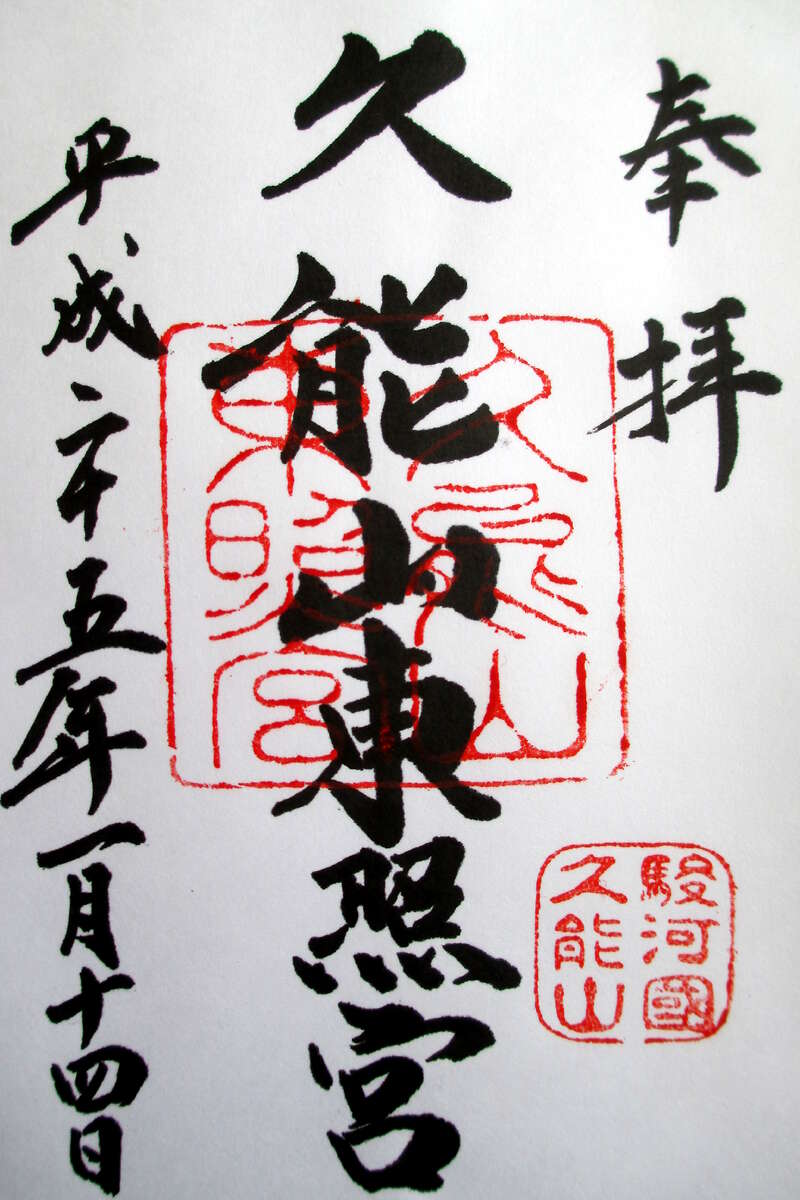 奉拝
久能山東照宮
平成二十五年一月十四日
久能山
東照宮
駿河國
久能山